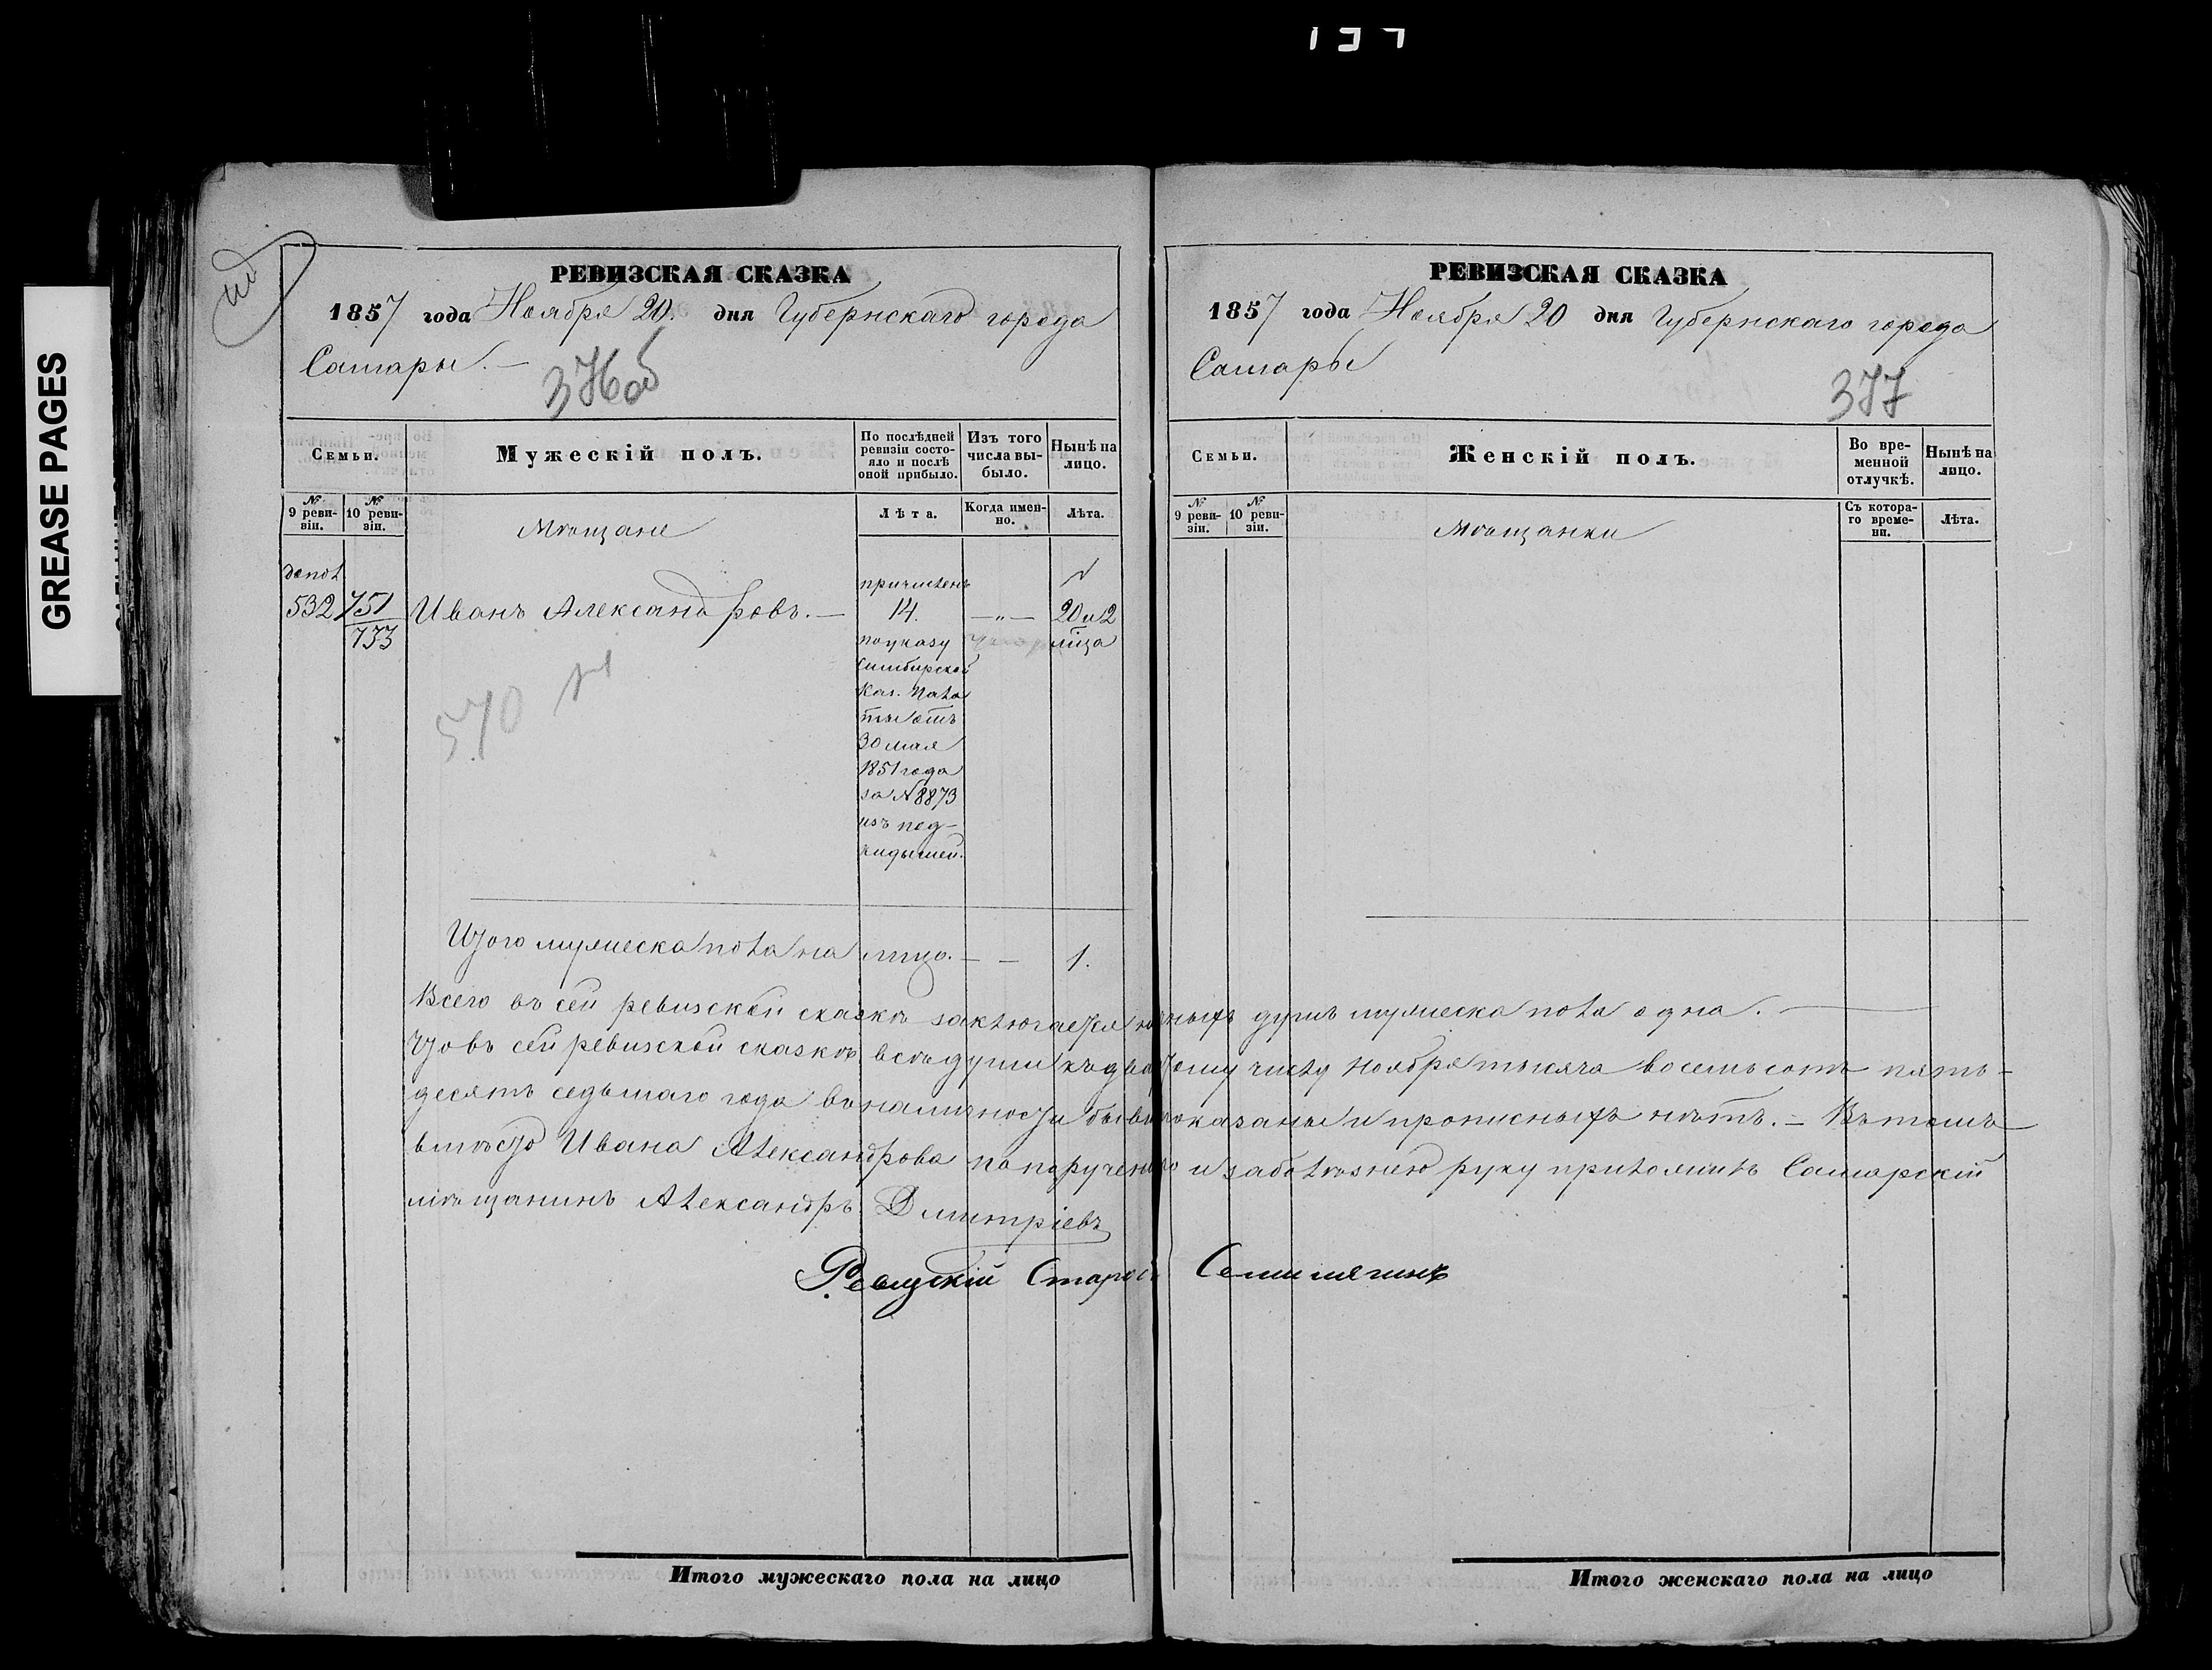 GREASE PAGES
РЕВИЗСКАЯ СКАЗКА
1857 года Ноября 20. дня Губернскаго города
Самары. –
376об
Семьи.
Мужескій полъ.
По послѣдней ревизіи состояло и послѣ оной прибыло.
Изъ того числа выбыло.
Нынѣ на лицо.
№ 9 ревизіи.
№ 10 ревизіи.
Мѣщане
Лѣта.
Когда именно.
Лѣта.
допол
532
751
733
Иванъ Александровъ. –
причисленъ
14.
по указу
Симбирской
Каз. Пала
ты отъ
30 мая
1851 года
за № 8873
изъ под-
кидышей.
– „ –
20 и 2
лица
570
Итого мужеска пола на лицо. – – 1.
РЕВИЗСКАЯ СКАЗКА
1857 года Ноября 20 дня Губернскаго города
Самары
377
Семьи.
Женскій полъ.
Во временной отлучкѣ.
Нынѣ на лицо.
№ 9 ревизіи.
№ 10 ревизіи.
Мѣщанки
Съ котораго времени.
Лѣта.
Всего въ сей ревизской сказкѣ заключается душъ мужеска пола одна. –
Что въ сей ревизской сказкѣ всѣ души къ числу Ноября тысяча восемь сотъ пять-
десятъ седьмаго года въ наличности показаны и прописныхъ нѣтъ. – Въ томъ
вмѣсто Ивана Александрова по порученію и за руку приложилъ Самарскій
мѣщанинъ Александръ Дмитріевъ
Староста
Итого мужескаго пола на лицо
Итого женскаго пола на лицо